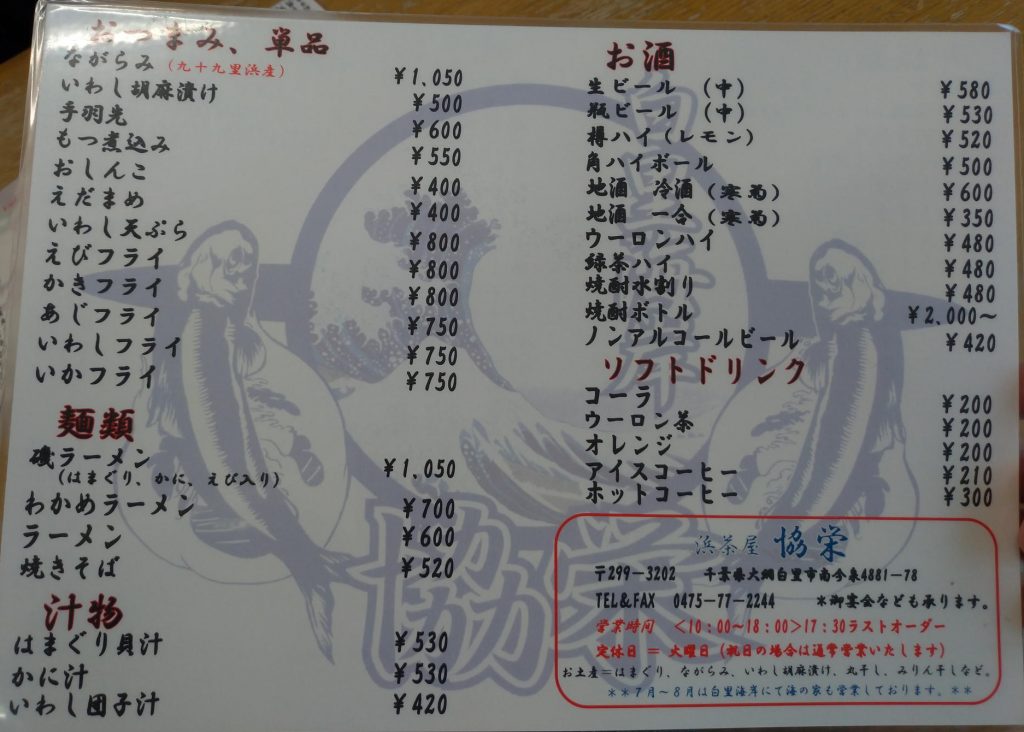 おつまみ、単品
ながらみ(九十九里浜産) ¥1,050
いわし胡麻漬け ¥500
手羽先 ¥600
もつ煮込み ¥550
おしんこ ¥400
えだまめ ¥400
いわし天ぷら ¥800
えびフライ ¥800
かきフライ ¥800
あじフライ ¥750
いわしフライ ¥750
いかフライ ¥750
麺類
磯ラーメン ¥1,050
(はまぐり、かに、えび入り)
わかめラーメン ¥700
ラーメン ¥600
焼きそば ¥520
汁物
はまぐり貝汁 ¥530
かに汁 ¥530
いわし団子汁 ¥420
お酒
生ビール (中) ¥580
瓶ビール (中) ¥530
樽ハイ(レモン) ¥520
角ハイボール ¥500
地酒 冷酒(寒菊) ¥600
地酒 一合(寒菊) ¥350
ウーロンハイ ¥480
緑茶ハイ ¥480
焼酎水割り ¥480
焼酎ボトル ¥2,000~
ノンアルコールビール ¥420
ソフトドリンク
コーラ ¥200
ウーロン茶 ¥200
オレンジ ¥200
アイスコーヒー ¥210
ホットコーヒー ¥300
浜茶屋 協栄
〒299-3202 千葉県大網白里市南今泉4881-78
TEL&FAX 0475-77-2244 *御宴会なども承ります。
営業時間 <10:00~18:00>17:30ラストオーダー
定休日 = 火曜日(祝日の場合は通常営業いたします)
お土産=はまぐり、ながらみ、いわし胡麻漬け、丸干し、みりん干しなど。
**7月~8月は白里海岸にて海の家も営業しております。**
白里海岸
協栄